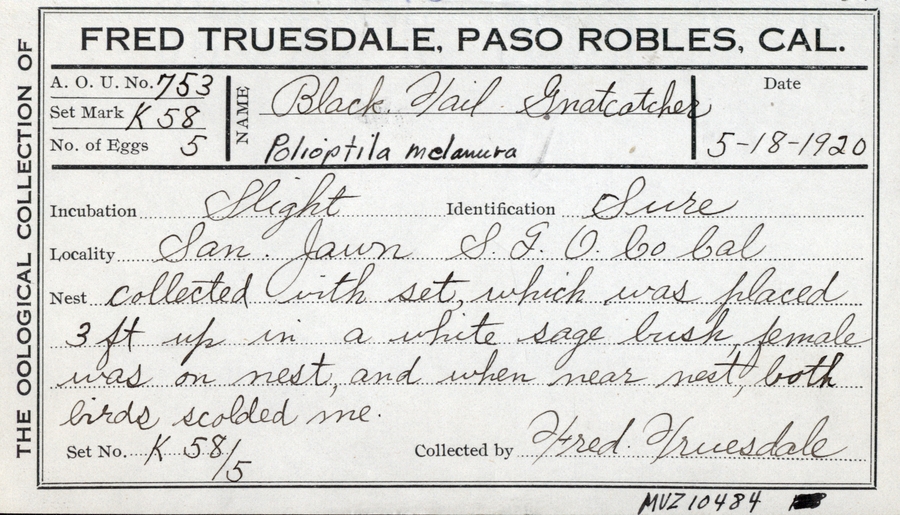 THE OOLOGICAL COLLECTION OF
FRED TRUESDALE, PASO ROBLES, CAL.
A. O. U. No. 753
Set Mark K 58
No. of Eggs 5
NAME
Black Tail Gnatcatcher
Polioptila melanura
Date
5-18-1920
Incubation Slight Identification Sure
Locality San. Jawn S. F. O. Co Cal
Nest collected with set, which was placed
3 ft up in a white sage bush, female
was on nest, and when near nest, both
birds scolded me.
Set No. K 58/5 Collected by Fred. Truesdale
MVZ 10484